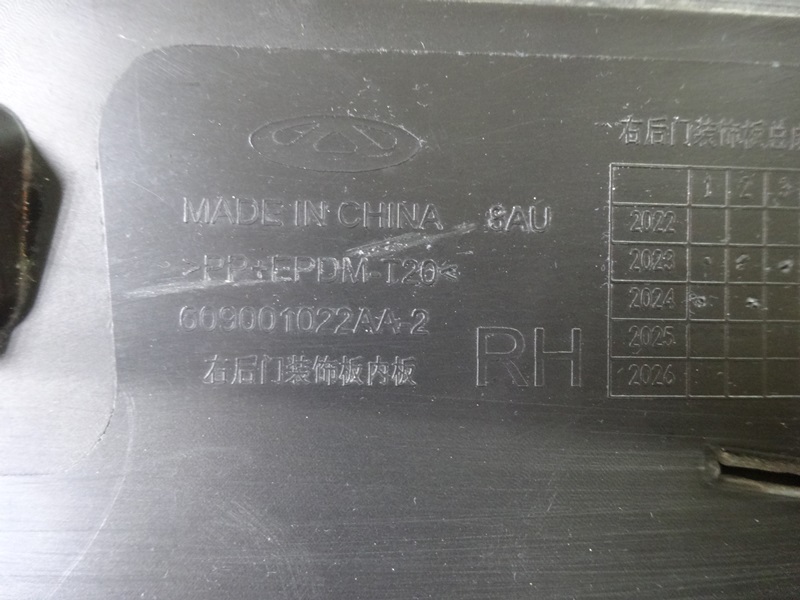 MADE IN CHINA 8AU
>PP+EPDM-T20<
609001022AA-2
右后门装饰板内板
RH
右后门装饰板总成
1 2 3
2022
2023
2024
2025
2026